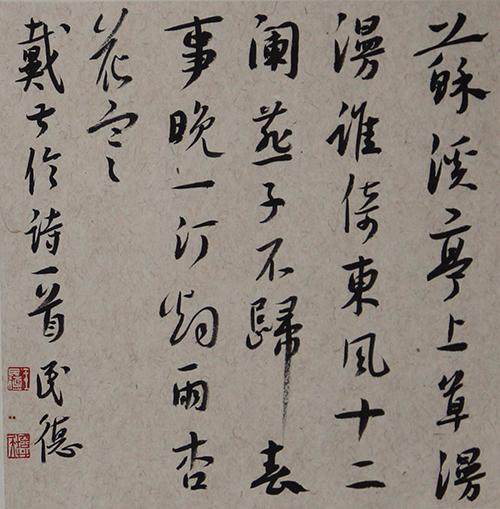 蘇溪亭上草漫
漫誰倚東風十二
闌燕子不歸春
事晚一汀烟雨杏
花寒
戴叔倫詩一首民德